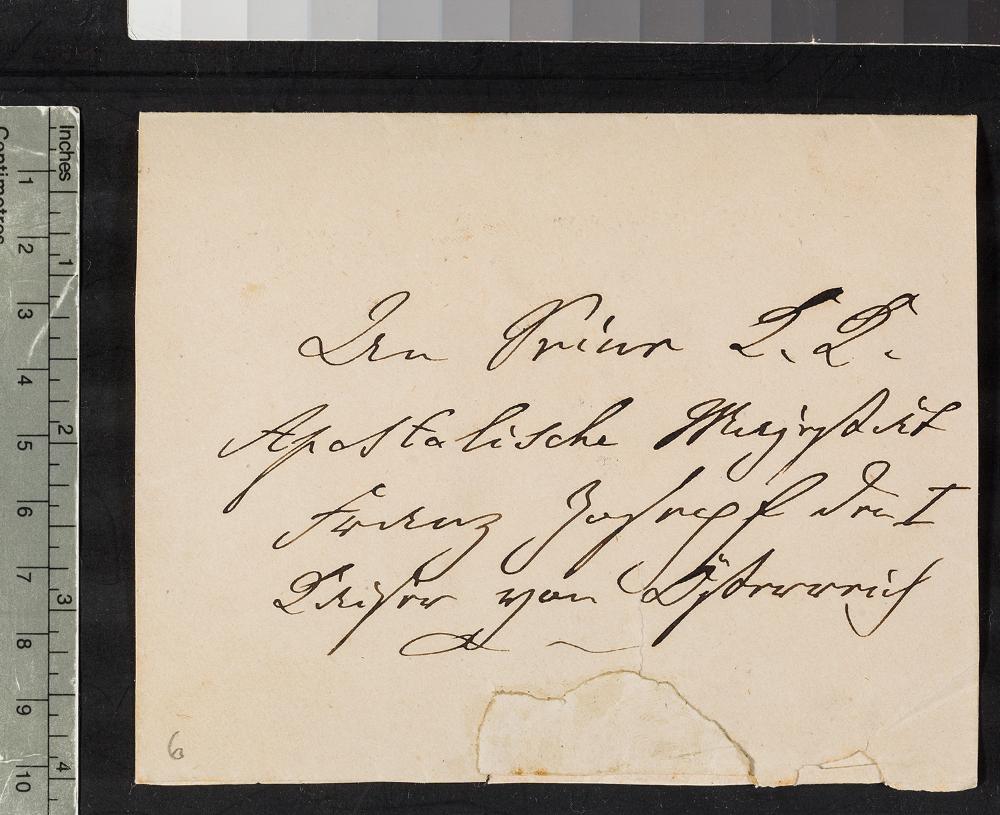 An Seine K. K.
Apostolische Majestät
Franz Josef den I
Kaiser von Österreich
6
Inches
1
2
3
4
Centimetres
1
2
3
4
5
6
7
8
9
10